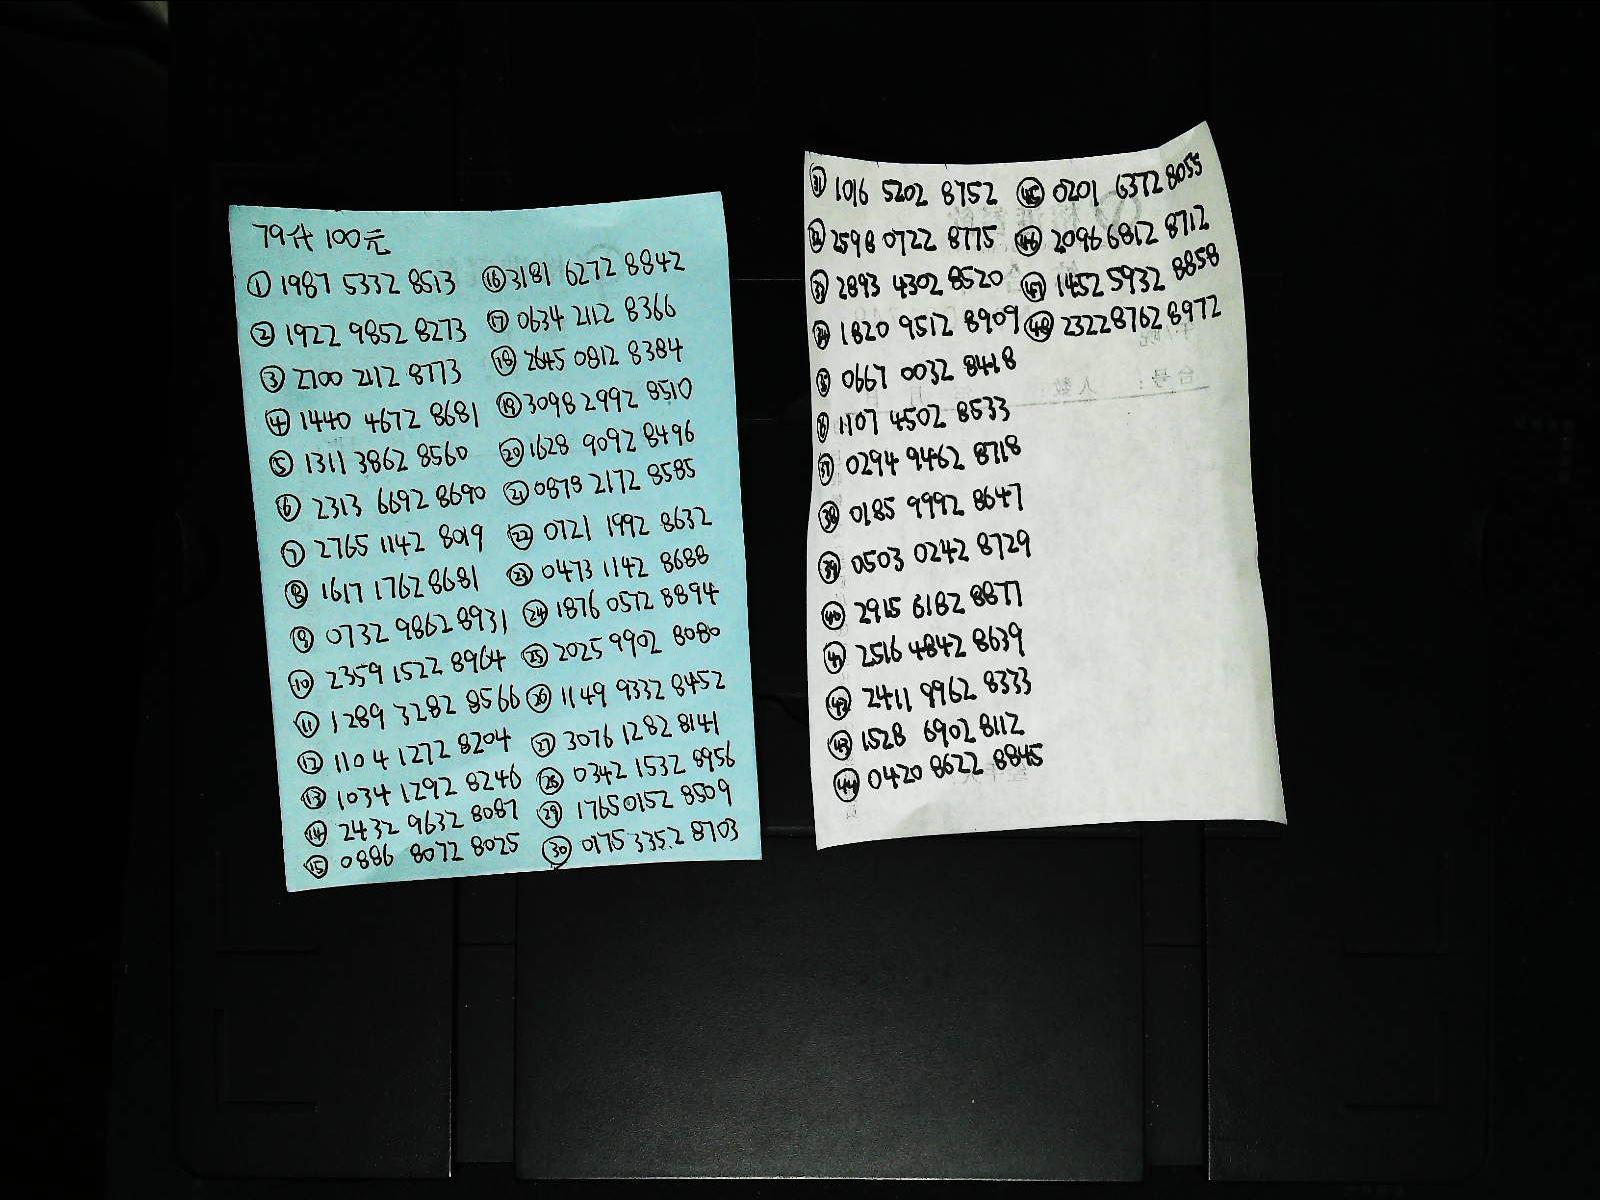 79才100元
① 1987 5332 8513
② 1922 9852 8273
③ 2700 2112 8773
④ 1440 4672 8681
⑤ 1311 3862 8560
⑥ 2313 6692 8690
⑦ 2765 1142 8019
⑧ 1617 1762 8681
⑨ 0732 9862 8931
⑩ 2359 1522 8964
⑪ 1289 3282 8566
⑫ 1104 1272 8204
⑬ 1034 1292 8246
⑭ 2432 9632 8087
⑮ 0886 8072 8025
⑯ 3181 6272 8842
⑰ 0634 2112 8366
⑱ 2645 0812 8384
⑲ 3098 2992 8510
⑳ 1628 9092 8496
㉑ 0878 2172 8585
㉒ 0721 1992 8632
㉓ 0473 1142 8688
㉔ 1876 0572 8894
㉕ 2025 9902 8080
㉖ 1149 9332 8452
㉗ 3076 1282 8141
㉘ 0342 1532 8956
㉙ 1765 0152 8509
㉚ 0175 3352 8703
㉛ 1016 5202 8752
㉜ 2598 0722 8775
㉝ 2893 4302 8520
㉞ 1820 9512 8909
㉟ 0667 0032 8418
㊱ 1107 4502 8533
㊲ 0294 9462 8718
㊳ 0185 9992 8647
㊴ 0503 0242 8729
㊵ 2915 6182 8877
㊶ 2516 4842 8639
㊷ 2411 8962 8333
㊸ 1528 6902 8112
㊹ 0420 8622 8845
㊺ 0201 6372 8055
㊻ 2096 6812 8712
㊼ 1452 5932 8858
㊽ 2322 8762 8972